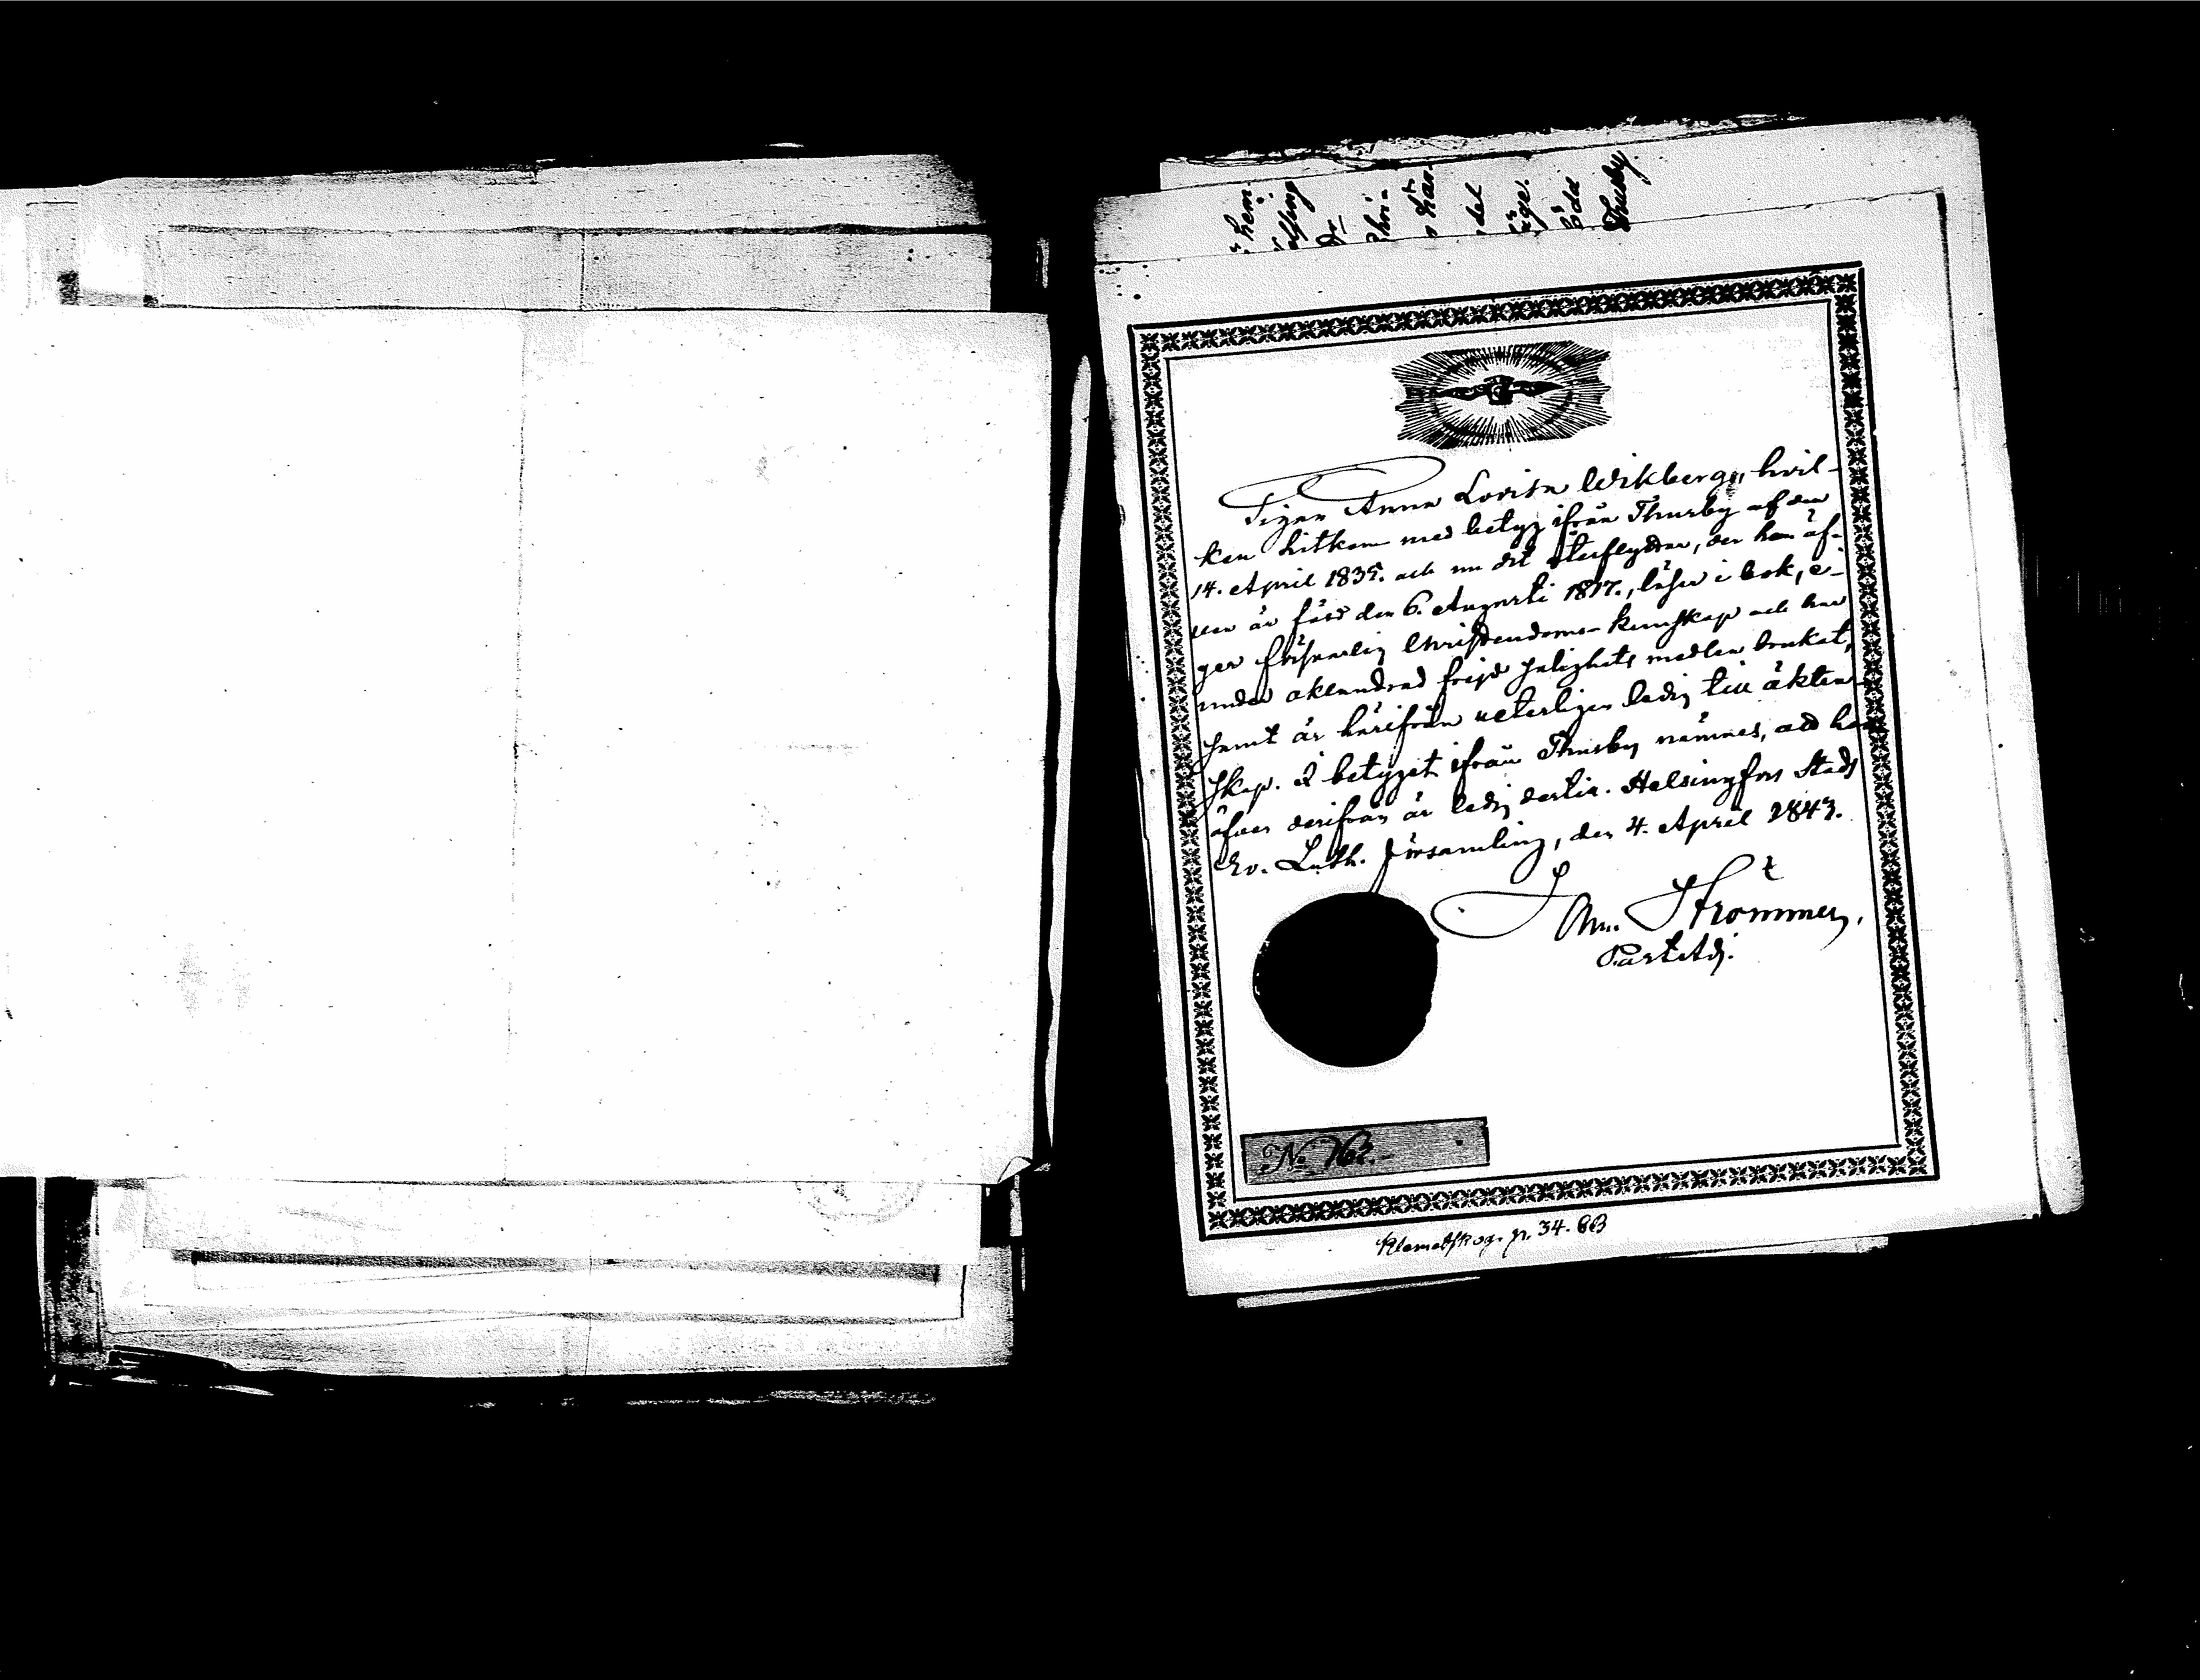 hem.
elsing
d-
Chri-
har
del
äge.
född
Thusby
Pigan Anna Lovisa Wikberg, hvil-
ken hitkom med betyg ifrån Thusby af den
14. April 1835. och nu dit återflyttar, der hon äf-
ven är född den 6. Augusti 1817., läser i bok, e-
ger försvarlig Christendoms-kunskap och har
under oklandrad frejd salighets medlen brukat,
samt är härifrån veterligen ledig till äkten-
skap. I betyget ifrån Thusby nämnes, att hon
äfven derifrån är ledig dertill. Helsingfors Stads
Ev. Luth. Församling, den 4. April 1843.
Strömmer,
Past. Adj.
No 762.-
Klemetskog. p. 34.